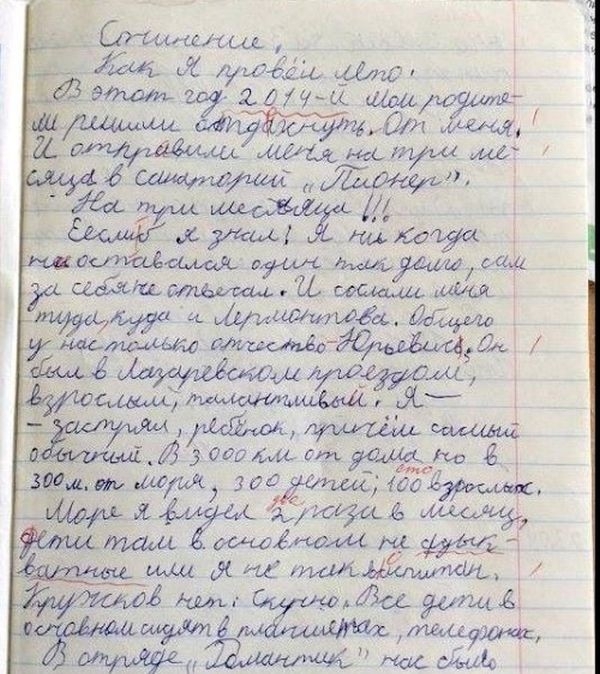 Сочинение.
Как я провёл лето.
В этот год 2014-й мои родите-
ли решили отдохнуть. От меня.
И отправили меня на три ме-
сяца в санаторий „Пионер".
На три месяца!!!
Еслиб я знал! Я ни когда
не оставался один так долго, сам
за себя не отвечал. И сослали меня
туда, куда и Лермонтова. Общего
у нас только отчество - Юрьевич. Он
был в Лазаревском проездом,
взрослый, талантливый. Я —
— застрял, ребёнок, причём самый
обычный. В 3000 км от дома но в
сто
300 м. от моря, 300 детей, 100 взрослых.
две
Море я видел 2 раза в месяц,
дети там в основном не адык-
ватные или я не так воспитан.
Кружков нет. Скучно. Все дети в
основном сидят в планшетах, телефонах.
В отряде „Романтик" нас было